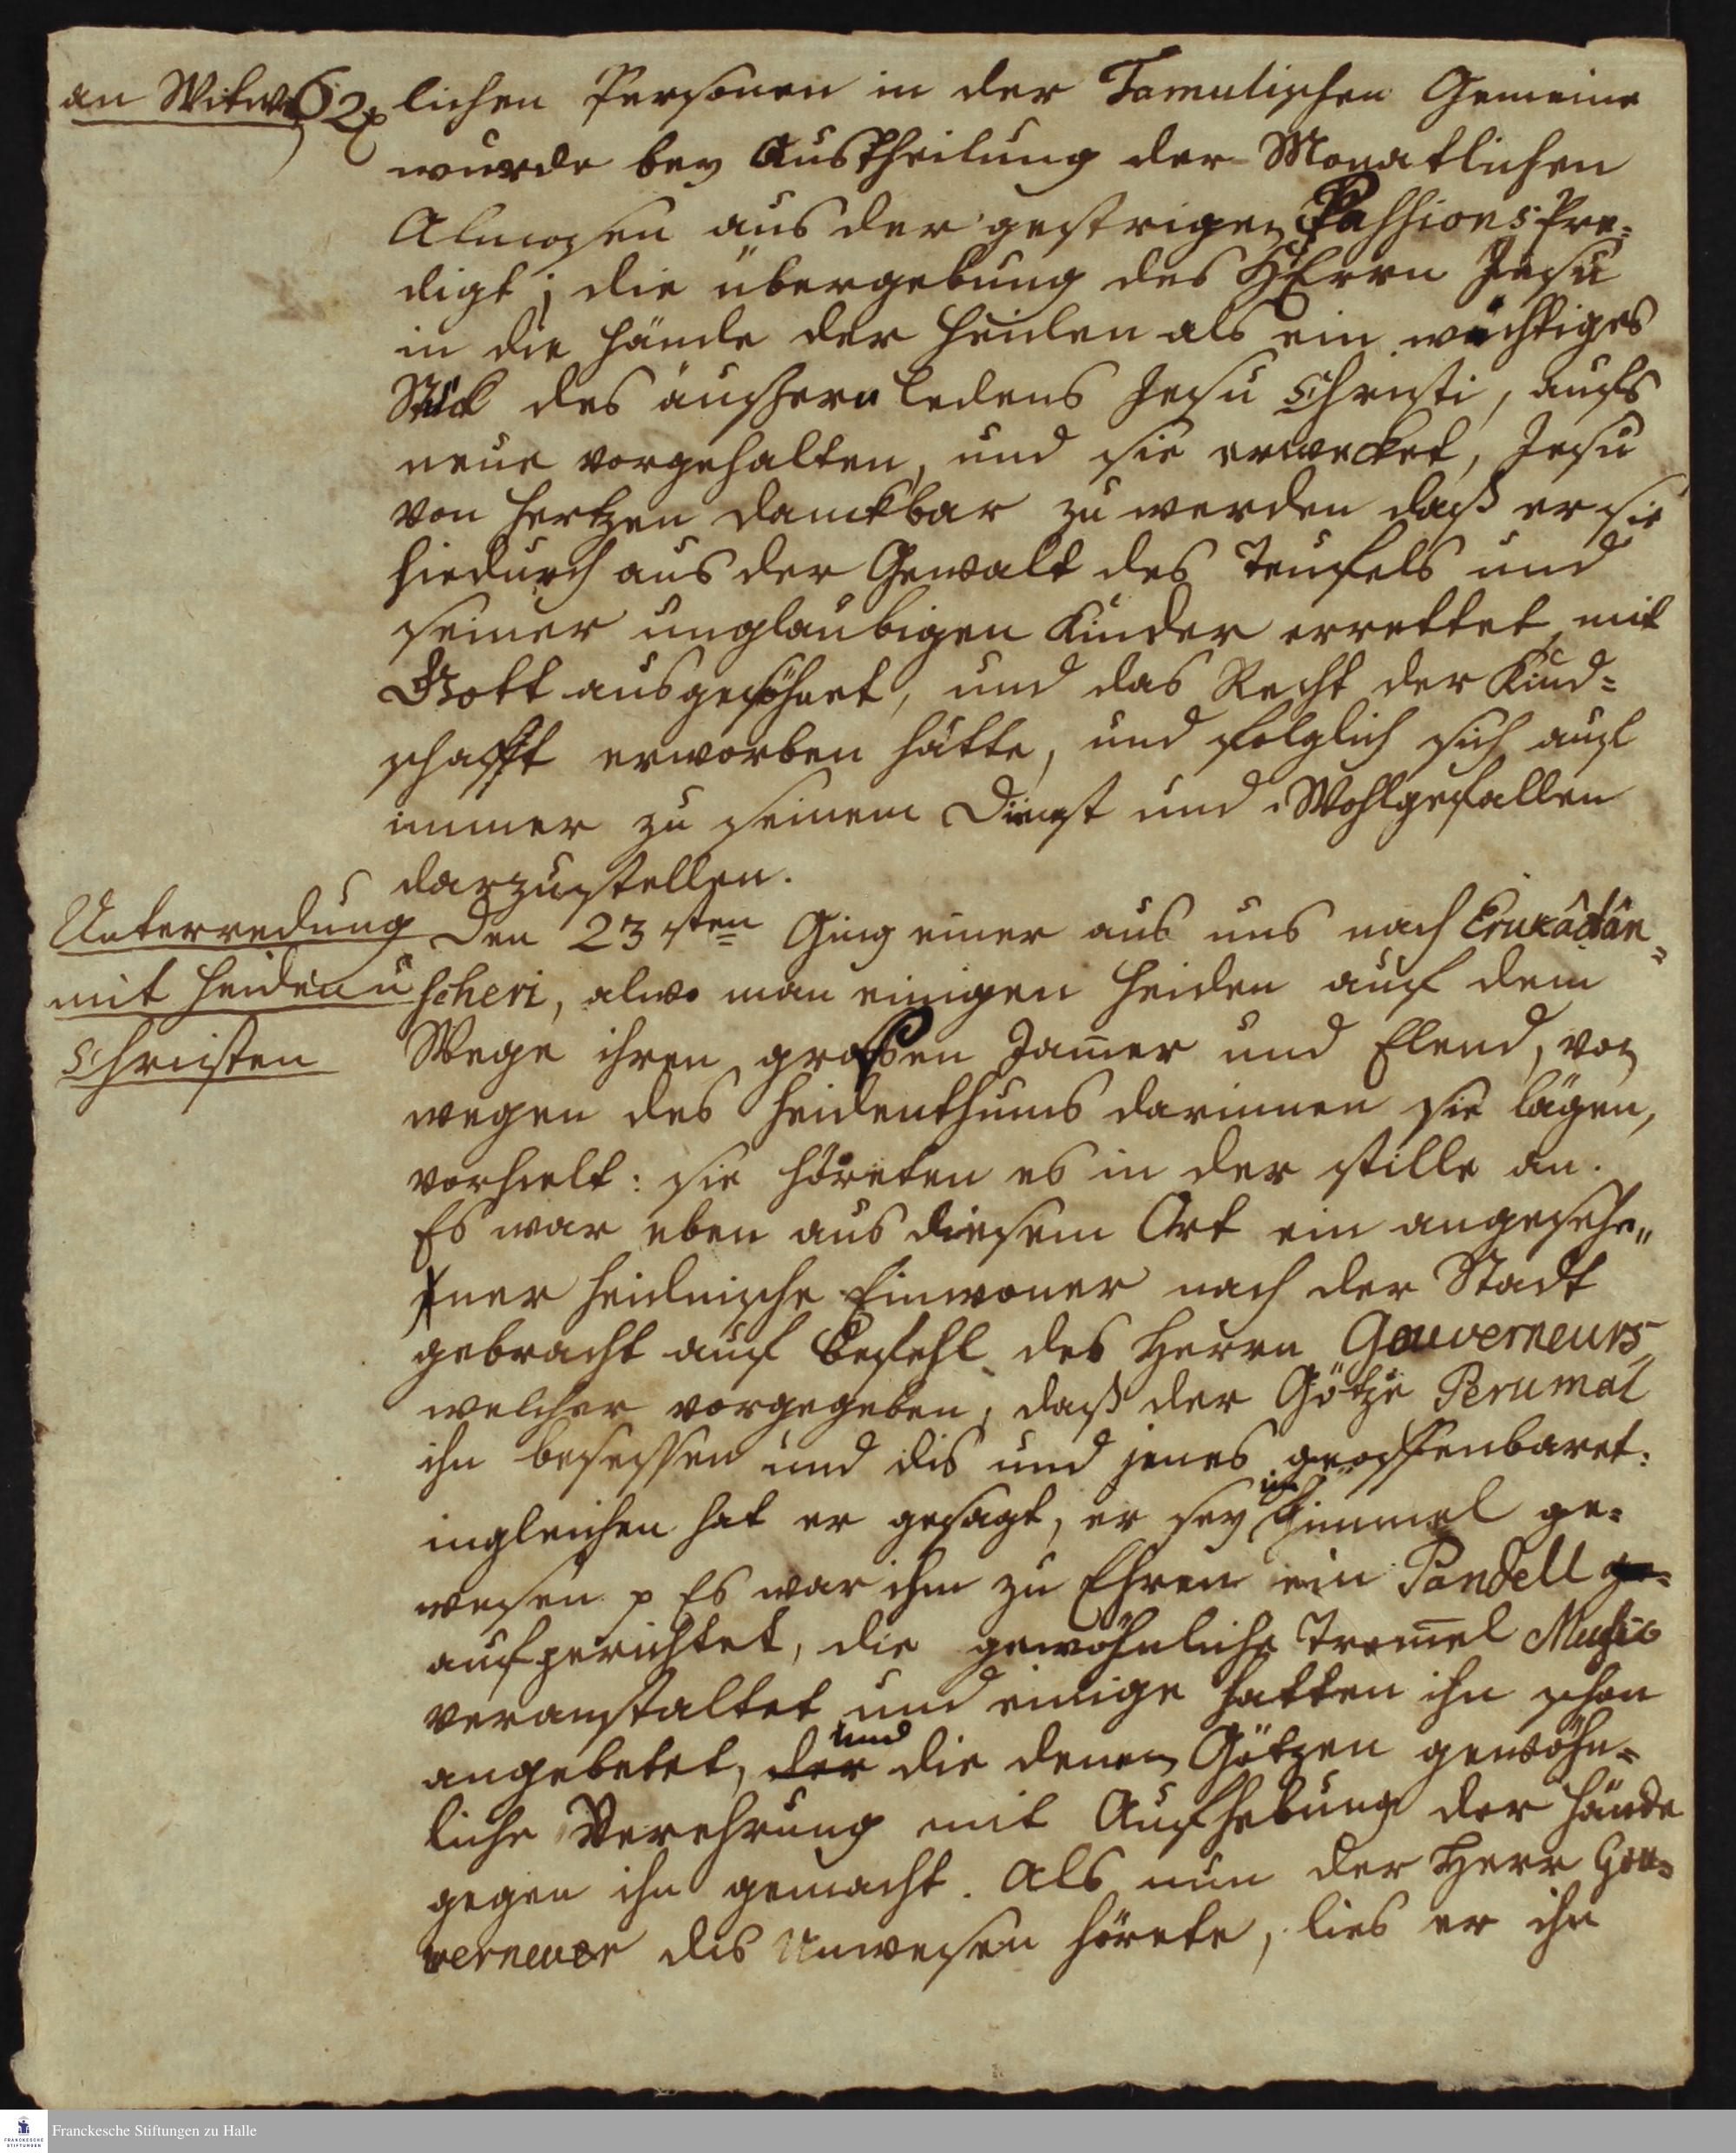 an Witwen
62
lichen Personen in der Tamulischen Gemeine
wurde bey Austheilung der Monatlichen
Almosen aus der gestrigen Passions Pre-
digt; die übergebung des HErrn Jesu
in die Hände der Heiden als ein wichtiges
Stück des äussern leidens Jesu Christi, aufs
neue vorgehalten, und sie erwecket, Jesu
von Hertzen danckbar zu werden daß er sie
hiedurch aus der Gewalt des Teufels und
seiner unglaubigen Kinder errettet, mit
Gott ausgesöhnet, und das Recht der Kind=
schafft erworben hätte, und folglich sich auch
immer zu seinem Dienst und Wohlgefallen
darzustellen.
Unterredung
mit Heiden u
Christen
Den 23sten Ging einer aus uns nach Erukâdân=
scheri, alwo man einigen Heiden auf dem
Wege ihren großen Jam̄er und Elend, von
wegen des Heidenthums darinnen sie lägen,
vorhielt: sie höreten es in der stille an.
Es war eben aus diesem Ort ein angesehe„
ner heidnische Einwoner nach der Stadt
gebracht auf Befehl des Herrn Gouverneurs,
welcher vorgegeben, daß der Götze Perumal
ihn besessen und dis und jenes geoffenbaret:
ingleichen hat er gesagt, er sey im Himmel ge=
wesen p Es war ihm zu Ehren ein Pandell ge=
aufgerichtet, die gewöhnliche Trom̄el Music
veranstaltet und einige hatten ihn schon
angebetet, der und die denen Götzen gewöhn=
liche Verehrung mit Aufhebung der Hände
gegen ihn gemacht. Als nun der Herr Gou=
verneur dis Unwesen hörete, lies er ihn
Franckesche Stiftungen zu Halle
FRANCKESCHE
STIFTUNGEN